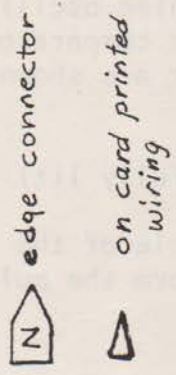 Z edge connector
on card printed
wiring